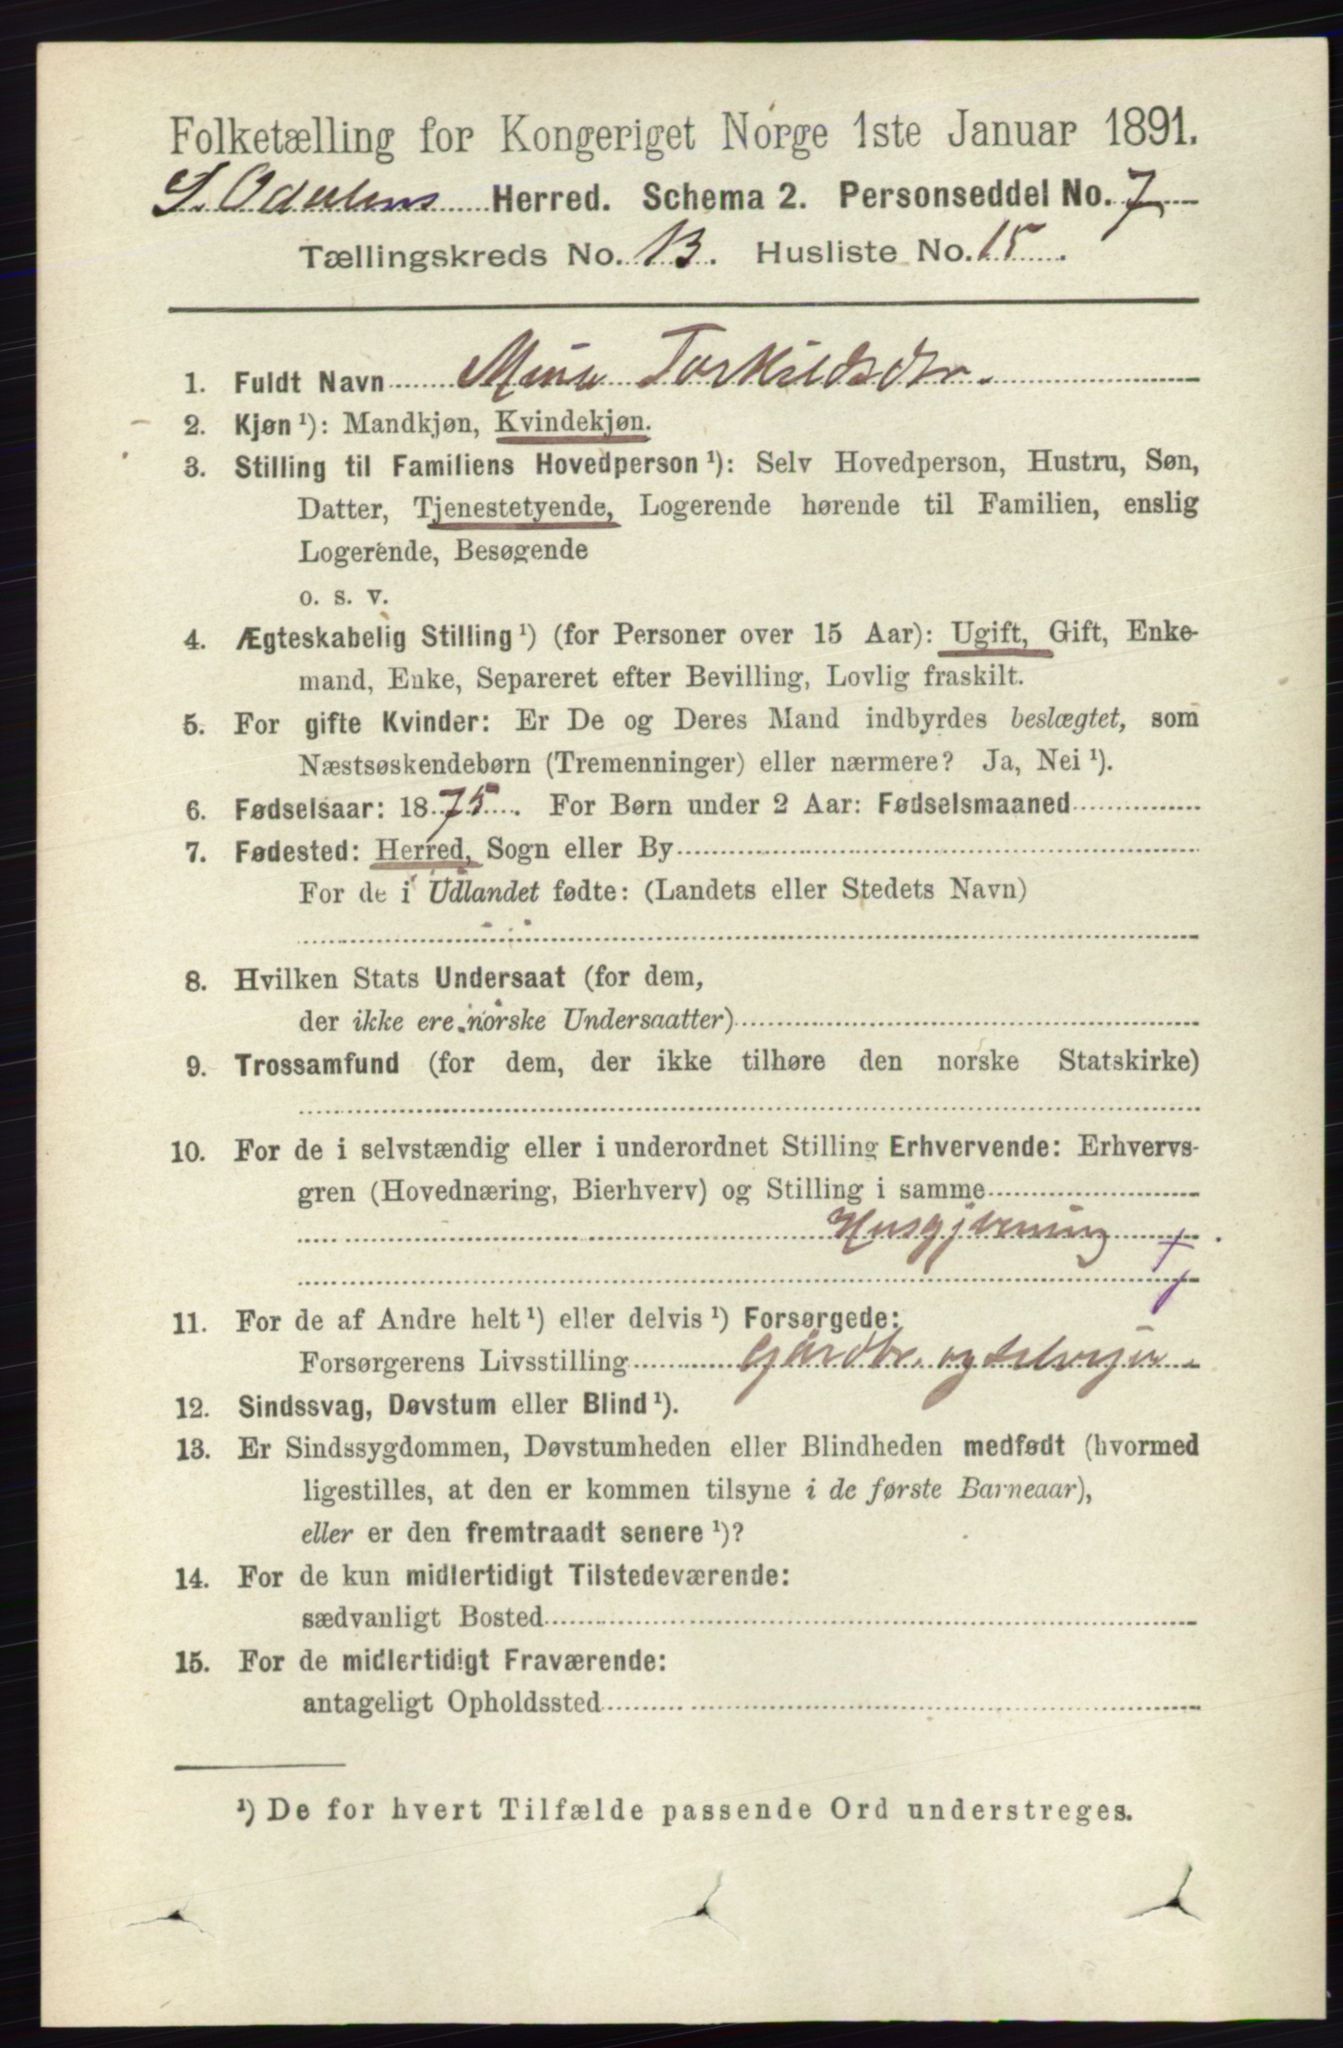 Folketælling for Kongeriget Norge 1ste Januar 1891.
S. Odalens Herred. Schema 2. Personseddel No. 7
Tællingskreds No. 13. Husliste No. 15.
1. Fuldt Navn Mina Torkildsdtr.
2. Kjøn ¹): Mandkjøn, Kvindekjøn.
3. Stilling til Familiens Hovedperson ¹): Selv Hovedperson, Hustru, Søn,
Datter, Tjenestetyende, Logerende hørende til Familien, enslig
Logerende, Besøgende
o. s. v.
4. Ægteskabelig Stilling ¹) (for Personer over 15 Aar): Ugift, Gift, Enke-
mand, Enke, Separeret efter Bevilling, Lovlig fraskilt.
5. For gifte Kvinder: Er De og Deres Mand indbyrdes beslægtet, som
Næstsøskendebørn (Tremenninger) eller nærmere? Ja, Nei ¹).
6. Fødselsaar: 1875. For Børn under 2 Aar: Fødselsmaaned
7. Fødested: Herred, Sogn eller By
For de i Udlandet fødte: (Landets eller Stedets Navn)
8. Hvilken Stats Undersaat (for dem,
der ikke ere norske Undersaatter)
9. Trossamfund (for dem, der ikke tilhøre den norske Statskirke)
10. For de i selvstændig eller i underordnet Stilling Erhvervende: Erhvervs-
gren (Hovednæring, Bierhverv) og Stilling i samme
Husgjerning
11. For de af Andre helt ¹) eller delvis ¹) Forsørgede:
Forsørgerens Livsstilling Gårdbr. og Selveier
12. Sindssvag, Døvstum eller Blind ¹).
13. Er Sindssygdommen, Døvstumheden eller Blindheden medfødt (hvormed
ligestilles, at den er kommen tilsyne i de første Barneaar),
eller er den fremtraadt senere ¹)?
14. For de kun midlertidigt Tilstedeværende:
sædvanligt Bosted
15. For de midlertidigt Fraværende:
antageligt Opholdssted
¹) De for hvert Tilfælde passende Ord understreges.